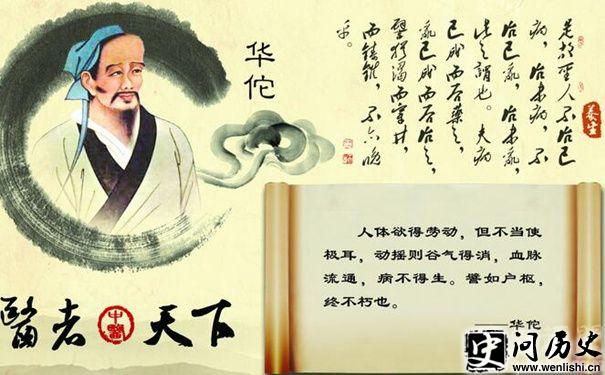 华佗
是故聖人不治已
病，治未病，不
治已亂，治未亂，
此之謂也。夫病
已成而后藥之，
亂已成而后治之，
譬猶渴而穿井，
不亦晚
乎。
養生
人体欲得劳动，但不当使
极耳，动摇则谷气得消，血脉
流通，病不得生。譬如户枢，
终不朽也。
——华佗
醫者中醫天下
问历史
www.wenlishi.cn